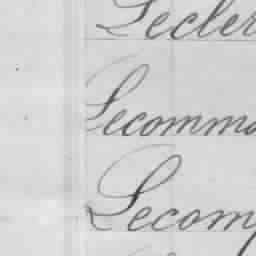 Lecler
Lecomma
Lecom